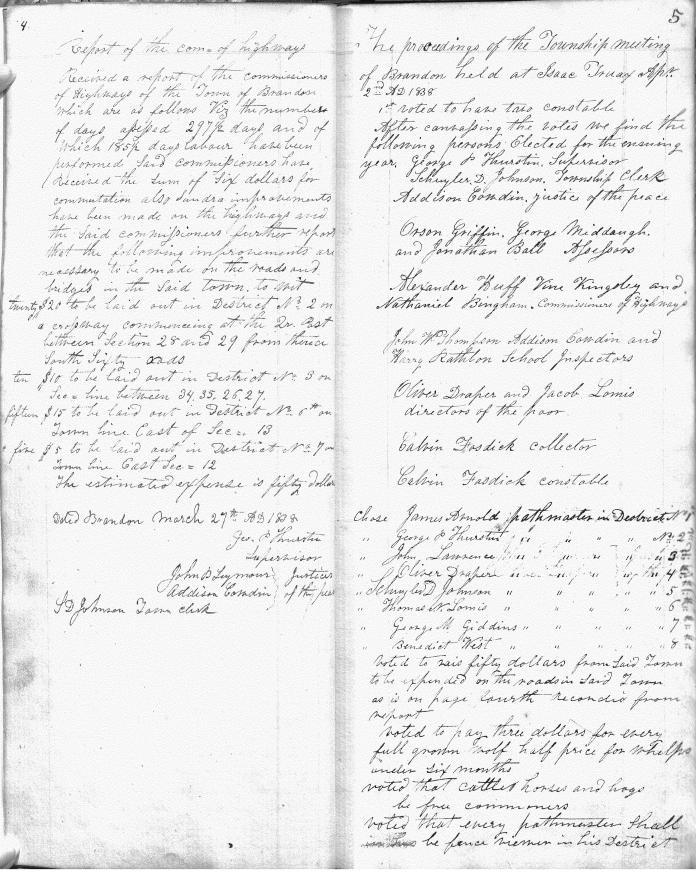 4.
Report of the com= of highways
Received a report of the commissioners
of Highways of the Town of Brandon
which are as follows Viz the number
of days assessed 297½ days and of
which 185½ days labour have been
performed Said commissioners have
Received the sum of Six dollars for
commutation also sundra improvements
have been made on the highways and
the Said commissioners further report
that the following improvements are
necessary to be made on the roads and
bridges in the Said town. to wit
twenty $20 to be laid out in District No 2 on
a crosway commencing at the Qr. Post
between Section 28 and 29 from thence
South Sixty rods
ten $10 to be laid out in District No. 3 on
Sec= line between 34, 35, 26, 27.
fifteen $15 to be laid out in District No. 6th on
Town line East of Sec=. 13
five $5 to be laid out in District No. 7 on
Town line East Sec= 12
The estimated expense is fifty dollars
Dated Brandon March 27th AD 1838
Geo. P Thurstin
Supervisor
John B Seymour } Justices
Addison Cowdin } of the peace
S D Johnson Town clerk
5
The proceedings of the Township meeting
of Brandon held at Isaac Truax Apr.
2nd AD 1838
1st voted to have two constable
After canvassing the votes we find the
following persons Elected for the ensuing
year, George P Thurstin, Supervisor
Schuyler, D. Johnson, Township Clerk
Addison Cowdin, justice of the peace
Orson Griffin, George Middaugh,
and Jonathan Ball Assessors
Alexander Huff Vine Kingsley and
Nathaniel Bingham, Commissioners of Highways
John W Thompson Addison Cowdin and
Harry Rathbon School Inspectors
Oliver Draper and Jacob Lomis
directors of the poor
Calvin Fosdick collector
Celvin Fosdick constable
Chose James Arnold pathmaster in District No 1
" George P Thurstin " " " " No 2
" John Lawrence " " " " 3
" Oliver Draper " " " " 4
" Schuyler D Johnson " " " " " 5
" Thomas N Lomis " " " " " 6
" George M Giddins " " " " " 7
" Benedict West " " " " " 8
voted to rais fifty dollars from Said Town
to be expended on the roads in Said Town
as is on page fourth recordid from
report
voted to pay three dollars for every
full grown wolf half price for whelps
under six months
voted that cattles horses and hogs
be free commoners
voted that every pathmaster Shall
be fence viewer in his District